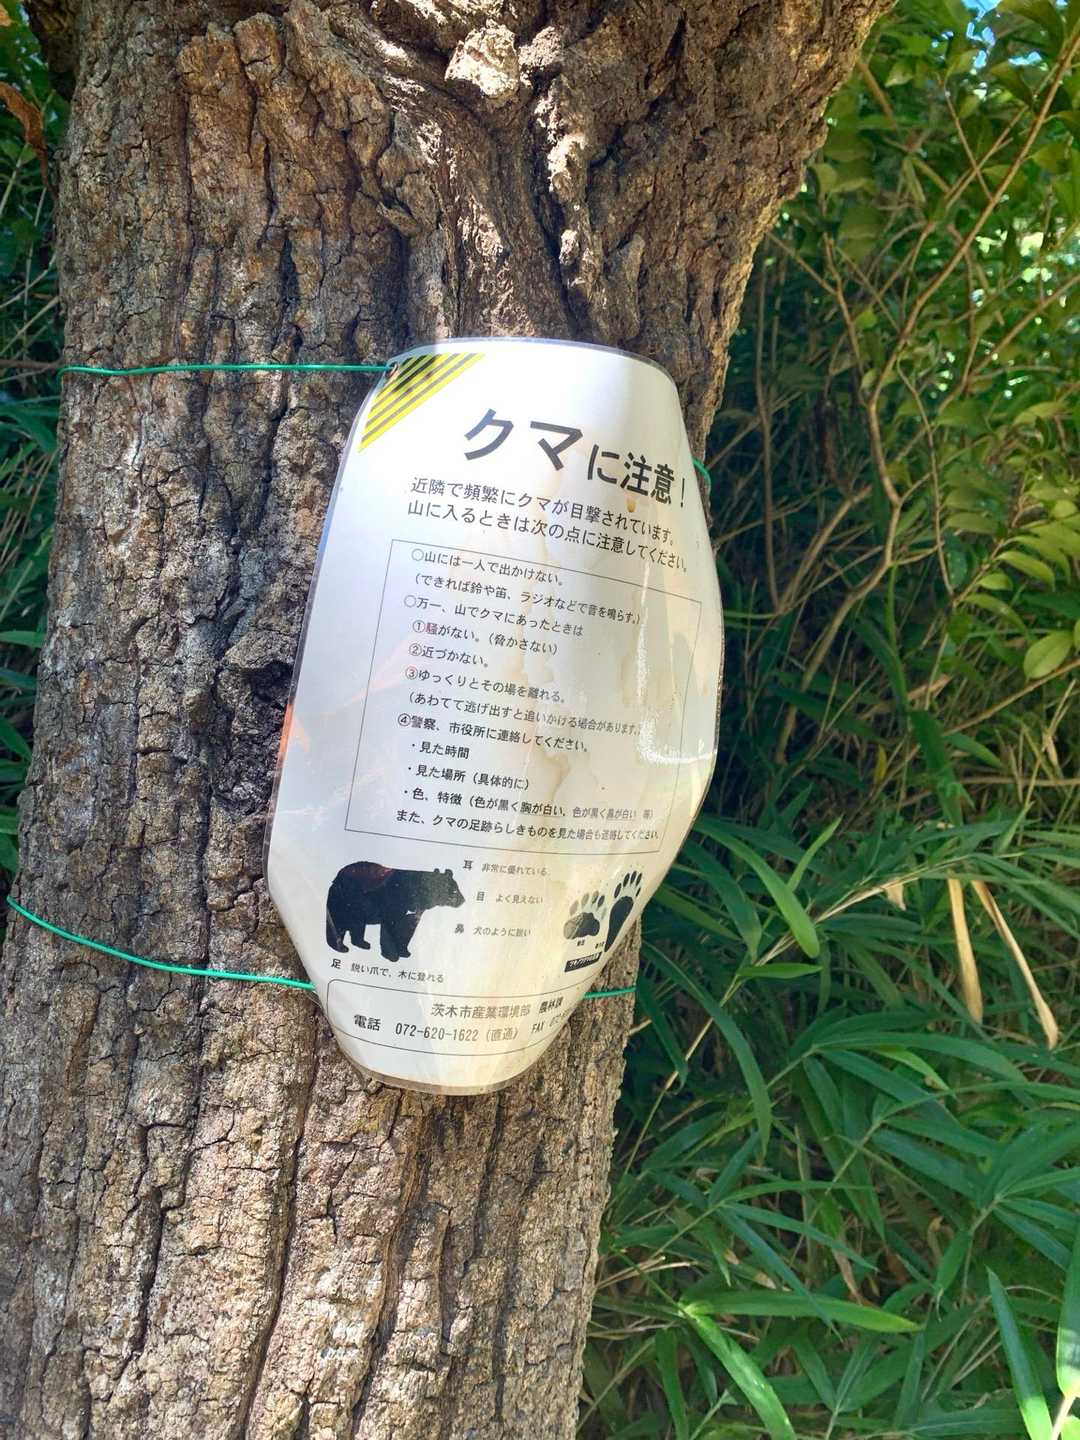 クマに注意！
近隣で頻繁にクマが目撃されています。
山に入るときは次の点に注意してください。
○山には一人で出かけない。
（できれば鈴や笛、ラジオなどで音を鳴らす。）
○万一、山でクマにあったときは
①騒がない。（脅かさない）
②近づかない。
③ゆっくりとその場を離れる。
（あわてて逃げ出すと追いかける場合があります。）
④警察、市役所に連絡してください。
・見た時間
・見た場所（具体的に）
・色、特徴（色が黒く胸が白い、色が黒く鼻が白い 等）
また、クマの足跡らしきものを見た場合も連絡してください。
耳 非常に優れている。
目 よく見えない
鼻 犬のように鋭い
足 鋭い爪で、木に登れる
茨木市産業環境部 農林課
電話 072-620-1622（直通） FAX